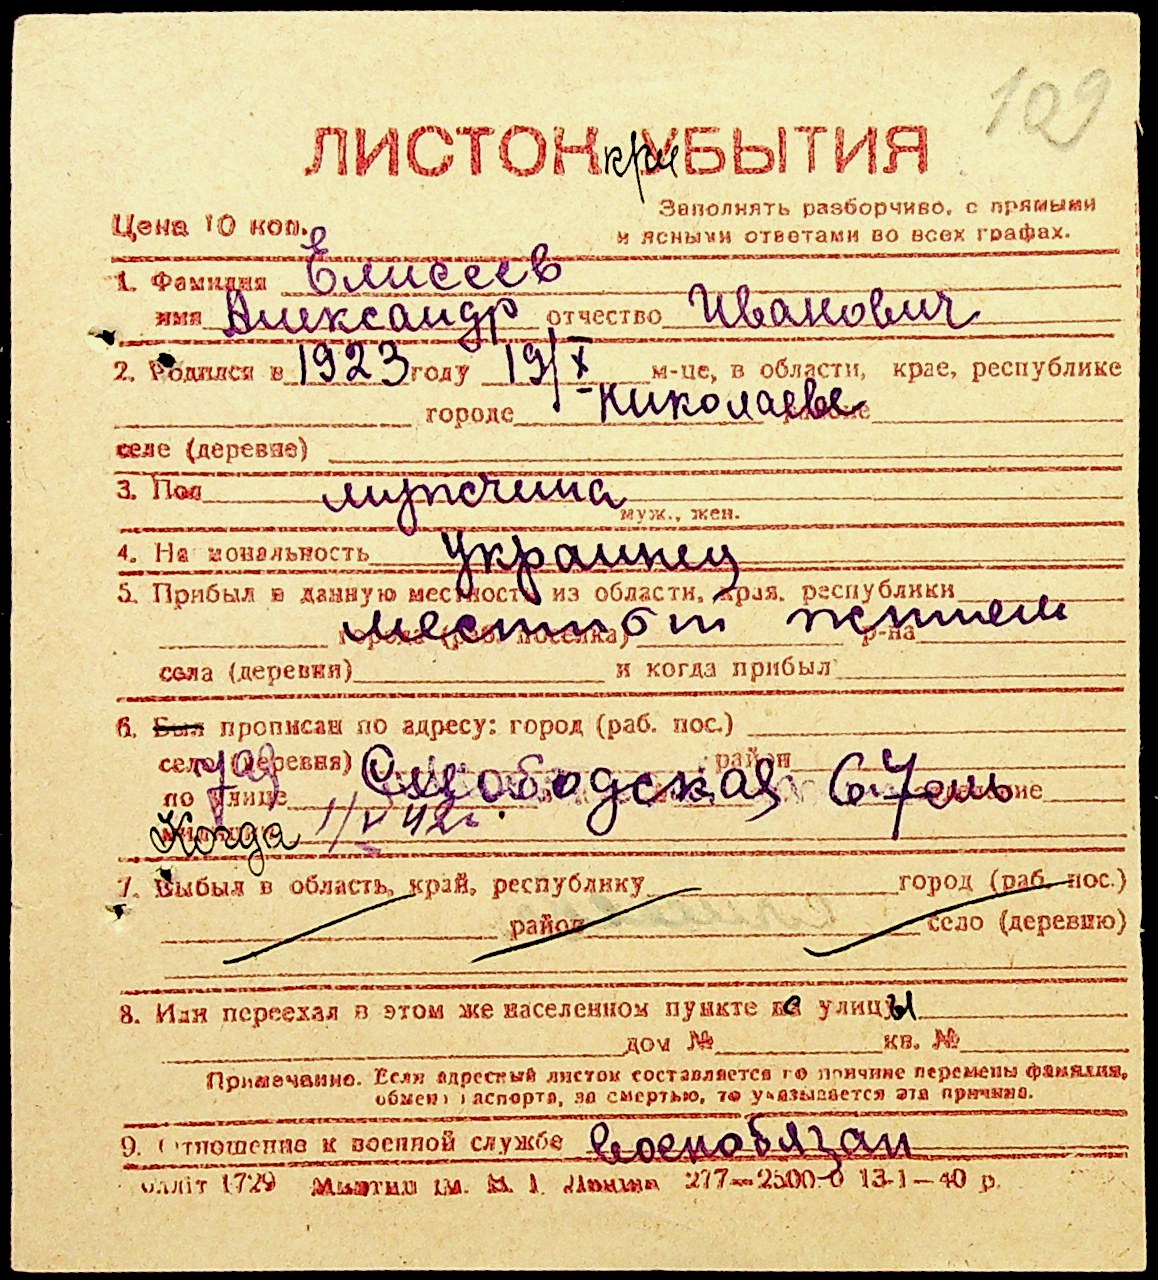 109
ЛИСТОК УБЫТИЯ
при
Цена 10 коп.
Заполнять разборчиво, с прямыми
и ясными ответами во всех графах.
1. Фамилия Елисеев
имя Александр отчество Иванович
2. Родился в 1923 году 19/X м-це, в области, крае, республике
городе Николаеве районе
селе (деревне)
3. Пол мужчина
муж., жен.
4. Национальность украинец
5. Прибыл в данную местность из области, края, республики
местный жител
города (раб. поселка) р-на
села (деревни) и когда прибыл
6. Был прописан по адресу: город (раб. пос.)
село (деревня) район
по улице Слободская 67 отделение
милиции Когда 1/V 42г.
7. Выбыл в область, край, республику город (раб. пос.)
район село (деревню)
8. Или переехал в этом же населенном пункте с улицы
дом № кв. №
Примечание. Если адресный листок составляется по причине перемены фамилии,
обмена паспорта, за смертью, то указывается эта причина.
9. Отношение к военной службе Военобязан
1729 277—2500-0 13-1—40 р.